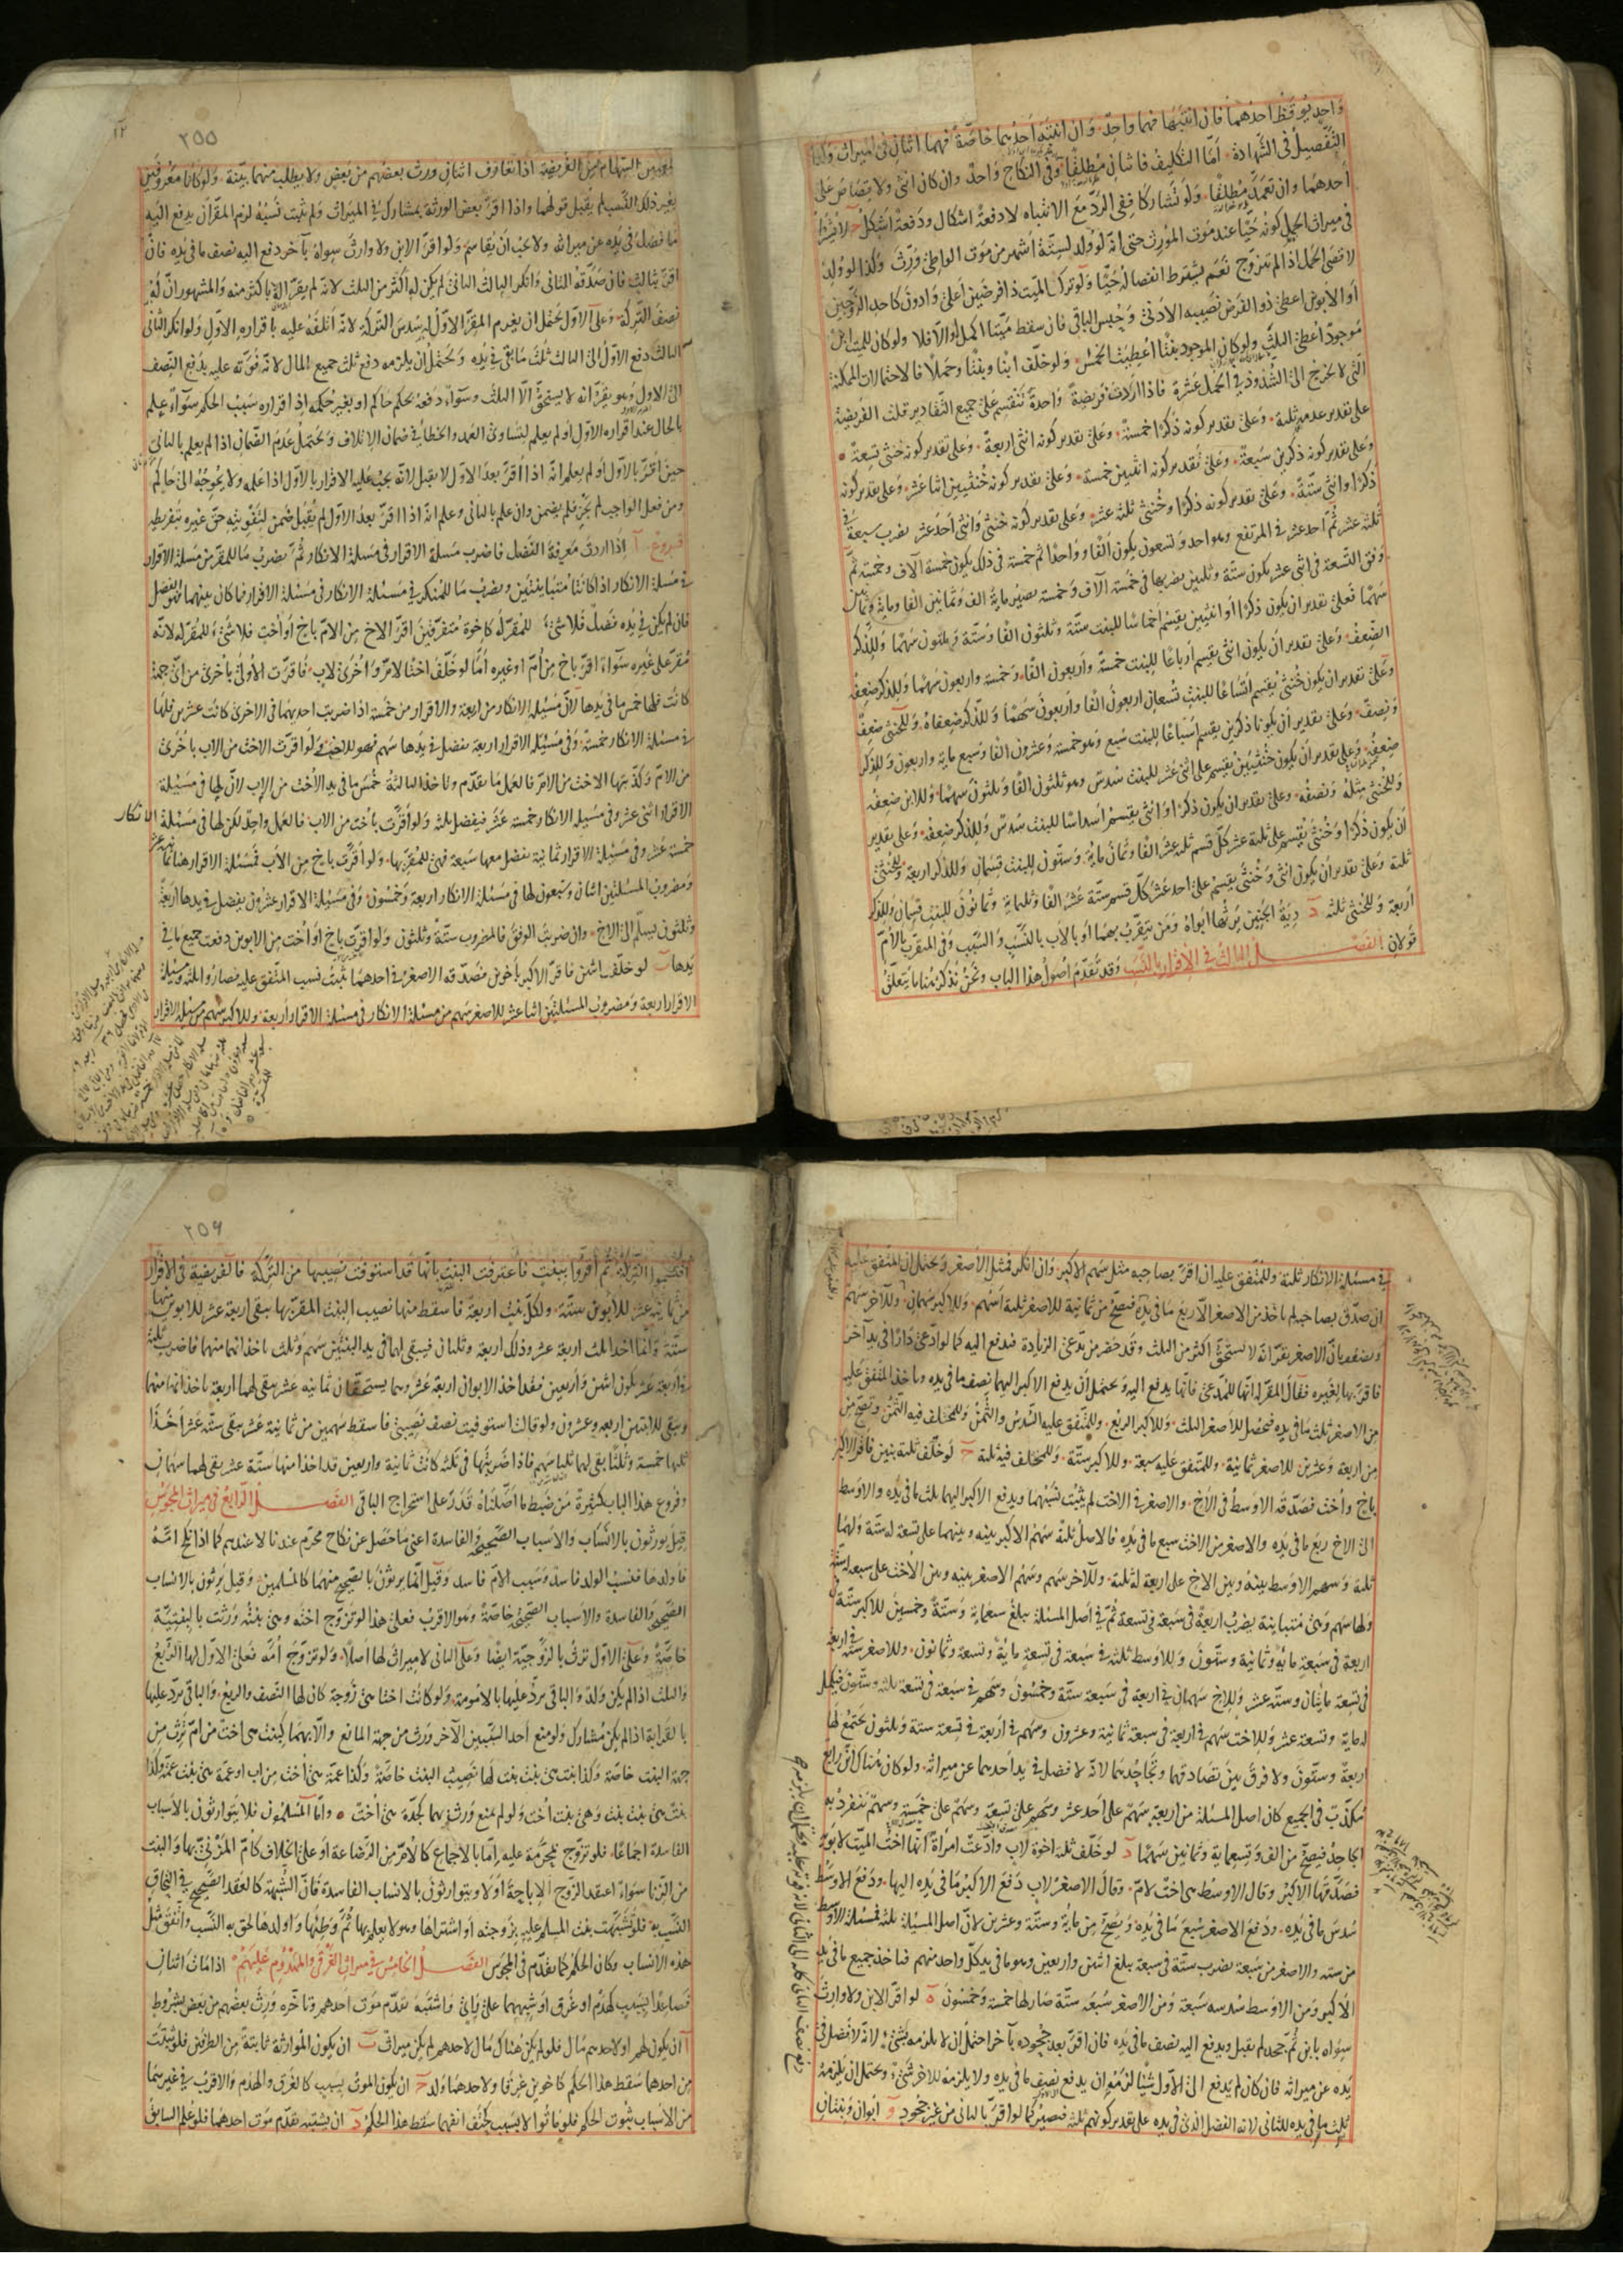 واحد يوقظ احدهما فان انتبها فهما واحد وان انتبه احدهما خاصة فهما اثنان في الميراث وكذا
التفصيل في الشهادة اما التكليف فاثنان مطلقا وفي النكاح واحد وان كان انثى ولا قصاص على
احدهما وان تعمد مطلقا ولو تشاركا ففي الرد مع الانتباه لا دفعة اشكال ودفعة اشكل
في ميراث الحمل كونه حيا عند موت المورث حتى انه لو ولد لستة اشهر من موت الواطئ ورث وكذا لو ولد
لاقصى الحمل اذا لم تتزوج نعم يشترط انفصاله حيا ولو ترك الميت ذا فرضين اعلى وادون كاحد الزوجين
او الابوين اعطي ذو الفرض نصيبه الادنى وحبس الباقي فان سقط ميتا اكمل له والا فلا ولو كان للميت ابن
موجود اعطي الثلث ولو كان الموجود بنتا اعطيت الخمس ولو خلف ابنا وبنتا وحملا فالاحتمالات الممكنة
التي لا تخرج الى الشذوذ في الحمل عشرة فاذا اردت فريضة واحدة تنقسم على جميع التقادير قلت الفريضة
على تقدير عدمه ثلثة وعلى تقدير كونه ذكرا خمسة وعلى تقدير كونه انثى اربعة وعلى تقدير كونه خنثى تسعة
وعلى تقدير كونه ذكرين سبعة وعلى تقدير كونه انثيين خمسة وعلى تقدير كونه خنثيين اثنا عشر وعلى تقدير كونه
ذكرا وانثى ستة وعلى تقدير كونه ذكرا وخنثى ثلثة عشر وعلى تقدير كونه خنثى وانثى احد عشر تضرب سبعة في
ثلثة عشر ثم احد عشر في المرتفع وهو احد وتسعون يكون الفا وواحدا ثم خمسة في ذلك يكون خمسة آلاف وخمسة ثم
وفق التسعة في اثني عشر يكون ستة وثلثين تضربها في خمسة آلاف وخمسة يصير ماية الف وثمانين الفا وماية وثمانين
سهما فعلى تقدير ان يكون ذكرا او انثيين يقسم اخماسا للبنت ستة وثلثون الفا وستة وثلثون سهما وللذكر
الضعف وعلى تقدير ان يكون انثى يقسم ارباعا للبنت خمسة واربعون الفا وخمسة واربعون سهما وللذكر ضعفه
وعلى تقدير ان يكون خنثى يقسم اتساعا للبنت تسعان اربعون الفا واربعون سهما وللذكر ضعفاه وللخنثى ضعف
ونصف وعلى تقدير ان يكونا ذكرين يقسم اسباعا للبنت سبع وهو خمسة وعشرون الفا وسبع ماية واربعون وللذكر
ضعفه وعلى تقدير ان يكون خنثيين يقسم على اثنى عشر للبنت سدس وهو ثلثون الفا وثلثون سهما وللابن ضعفه
وللخنثى مثله ونصفه وعلى تقدير ان يكون ذكرا وانثى يقسم اسداسا للبنت سدس وللذكر ضعفه وعلى تقدير
ان يكون ذكرا وخنثى يقسم على ثلثة عشر كل قسم ثلثة عشر الفا وثمان ماية وستون للبنت قسمان وللذكر اربعة وللخنثى
ثلثة وعلى تقدير ان يكون انثى وخنثى يقسم على احد عشر كل قسم ستة عشر الفا وثلثماية وثمانون للبنت قسمان وللذكر
اربعة وللخنثى ثلثة د دية الجنين يرثها ابواه ومن يتقرب بهما او بالاب بالنسب والسبب وفي المتقرب بالام
قولان الفصل الثالث في الاقرار بالنسب وقد تقدم اصول هذا الباب ونحن نذكر هنا ما يتعلق
٢٥٥
السهام من الفريضة اذا تعارف اثنان ورث بعضهم من بعض ولا يطلب منهما بينة ولو كانا معروفين
بغير ذلك النسب لم يقبل قولهما واذا اقر بعض الورثة بمشارك في الميراث ولم يثبت نسبه لزم المقر ان يدفع اليه
ما فضل في يده عن ميراثه ولا يجب ان يقاسمه ولو اقر الابن ولا وارث سواه بآخر دفع اليه نصف ما في يده فان
اقر بثالث فان صدقه الثاني وانكر الثالث الثاني لم يكن له اكثر من الثلث لانه لم يقر له باكثر منه والمشهور ان له
نصف التركة وعلى الاول يحتمل ان يغرم المقر الاول له سدس التركة لانه اتلفه عليه باقراره الاول ولو انكر الثاني
الثالث دفع الاول الى الثالث ثلث ما بقي في يده ويحتمل ان يلزمه دفع ثلث جميع المال لانه فوته عليه بدفع النصف
الى الاول وهو يقر انه لا يستحق الا الثلث وسواء دفعه بحكم حاكم او بغير حكمه اذ اقراره سبب الحكم سواء علم
بالحال عند اقراره الاول او لم يعلم لتساوي العمد والخطأ في ضمان الاتلاف ويحتمل عدم الضمان اذا لم يعلم بالثاني
حين اقر بالاول او لم يعلم انه اذا اقر بعد الاول لا يقبل لانه يجب عليه الاقرار بالاول اذا علمه ولا يحوجه الى حاكم
ومن فعل الواجب لم يجن فلم يضمن وان علم بالثاني وعلم انه اذا اقر بعد الاول لم يقبل ضمن لتفويته حق غيره بتفريطه
فروع آ اذا اردت معرفة الفضل فاضرب مسئلة الاقرار في مسئلة الانكار ثم تضرب ما للمقر من مسئلة الاقرار
في مسئلة الانكار اذا كانتا متباينتين وتضرب ما للمنكر في مسئلة الانكار في مسئلة الاقرار فما كان بينهما فهو الفضل
فان لم يكن في يده فضل فلا شئ للمقر له كاخوة متفرقين اقر الاخ من الام باخ او اخت فلا شئ للمقر له لانه
مقر على غيره سواء اقر باخ من ام او غيره اما لو خلف اختا لام واخرى لاب فاقرت الاولى باخرى من اي جهة
كانت فلها خمس ما في يدها لان مسئلة الانكار من اربعة والاقرار من خمسة اذا ضربت احديهما في الاخرى كانت عشرين فلها
في مسئلة الانكار خمسة وفي مسئلة الاقرار اربعة يفضل في يدها سهم فهو للاخت ولو اقرت الاخت من الاب باخرى
من الام وكذبتها الاخت من الام فالعمل ما تقدم وتاخذ الثالثة خمس ما في يد الاخت من الاب لان لها في مسئلة
الاقرار اثنى عشر وفي مسئلة الانكار خمسة عشر فيفضل ثلثة ولو اقرت باخت من الاب فالعمل واحد لكن لها في مسئلة الانكار
خمسة عشر وفي مسئلة الاقرار ثمانية يفضل معها سبعة فهي للمقر بها ولو اقرت باخ من الاب فمسئلة الاقرار هنا ثمانية عشر
ومضروب المسئلتين اثنان وسبعون لها في مسئلة الانكار اربعة وخمسون وفي مسئلة الاقرار عشرون يفضل في يدها اربعة
وثلثون يسلم الى الاخ وان ضربت الوفق فالمضروب ستة وثلثون ولو اقرت باخ او اخت من الابوين دفعت جميع ما في
يدها ب لو خلف اثنين فاقر الاكبر باخوين فصدقه الاصغر في احدهما ثبت نسب المتفق عليه فصاروا ثلثة ومسئلة
الاقرار اربعة ومضروب المسئلتين اثنا عشر للاصغر سهم من مسئلة الانكار في مسئلة الاقرار اربعة وللاكبر سهم من مسئلة الاقرار
في مسئلة الانكار ثلثة وللمتفق عليه ان اقر بصاحبه مثل سهم الاكبر وان انكر فمثل الاصغر ويحتمل ان المتفق عليه
ان صدق بصاحبه لم ياخذ من الاصغر الا ربع ما في يده فتصح من ثمانية للاصغر ثلثة اسهم وللاكبر سهمان وللآخر سهم
ويضعف بان الاصغر يقر انه لا يستحق اكثر من الثلث وقد حضر من يدعي الزيادة فدفع اليه كما لو ادعى دارا في يد آخر
فاقر بها لغيره فقال المقر له انها للمدعي فانها يدفع اليه ويحتمل ان يدفع الاكبر اليهما نصف ما في يده وياخذ المتفق عليه
من الاصغر ثلث ما في يده فيحصل للاصغر الثلث وللاكبر الربع وللمتفق عليه السدس والثمن وللمختلف فيه الثمن وتصح من
من اربعة وعشرين للاصغر ثمانية وللمتفق عليه سبعة وللاكبر ستة وللمختلف فيه ثلثة ج لو خلف ثلثة بنين فاقر الاكبر
باخ واخت فصدقه الاوسط في الاخ والاصغر في الاخت لم يثبت نسبهما ويدفع الاكبر اليهما ثلث ما في يده والاوسط
الى الاخ ربع ما في يده والاصغر من الاخت سبع ما في يده فالاصل ثلثة سهم الاكبر بينه وبينهما على تسعة له ستة ولهما
ثلثة وسهم الاوسط بينه وبين الاخ على اربعة له ثلثة وللآخر سهم وسهم الاصغر بينه وبين الاخت على سبعة له ستة
ولها سهم وهي متباينة يضرب اربعة في سبعة في تسعة ثم في اصل المسئلة يبلغ سبعماية وستة وخمسين للاكبر ستة في
اربعة في سبعة ماية وثمانية وستون وللاوسط ثلثة في سبعة في تسعة ماية وتسعة وثمانون وللاصغر ستة في اربعة
في تسعة مايتان وستة عشر وللاخ سهمان في اربعة في سبعة ستة وخمسون وسهم في سبعة في تسعة ثلثة وستون فيكمل
له ماية وتسعة عشر وللاخت سهم في اربعة في سبعة ثمانية وعشرون وسهم في اربعة في تسعة ستة وثلثون يجتمع لها
اربعة وستون ولا فرق بين تصادقهما وتجاحدهما لانه لا فضل في يد احدهما عن ميراثه ولو كان هناك ابن رابع
مكذب في الجميع كان اصل المسئلة من اربعة سهم على احد عشر وسهم على تسعة وسهم على خمسة وسهم ينفرد به
الجاحد فتصح من الف وتسعماية وثمانين سهما د لو خلف ثلثة اخوة لاب وادعت امراة انها اخت الميت لابويه
فصدقها الاكبر وقال الاوسط هي اخت لام وقال الاصغر لاب دفع الاكبر ما في يده اليها ودفع الاوسط
سدس ما في يده ودفع الاصغر سبع ما في يده وتصح من ماية وستة وعشرين لان اصل المسئلة ثلثة فمسئلة الاوسط
من ستة والاصغر من سبعة يضرب ستة في سبعة يبلغ اثنين واربعين وهو ما في يد كل واحد منهم فتاخذ جميع ما في يد
الاكبر ومن الاوسط سدسه سبعة ومن الاصغر سبعه ستة صار لها خمسة وخمسون ه لو اقر الابن ولا وارث
سواه بابن ثم جحد لم يقبل ويدفع اليه نصف ما في يده فان اقر بعد جحوده بآخر احتمل ان لا يلزمه شئ لانه لا فضل في
يده عن ميراثه فان كان لم يدفع الى الاول شيئا لزمه ان يدفع نصف ما في يده ولا يلزمه للاخر شئ ويحتمل ان يلزمه
ثلث ما في يده للثاني لانه الفضل الذي في يده على تقدير كونهم ثلثة فيصير كما لو اقر بالثاني من غير جحود و ابوان وبنتان
٢٥٦
اقتسموا التركة ثم اقروا ببنت فاعترفت البنت بانها قد استوفت نصيبها من التركة فالفريضة في الاقرار
من ثمانية عشر للابوين ستة ولكل بنت اربعة فاسقط منها نصيب البنت المقر بها يبقى اربعة عشر للابوين منها
ستة وانما اخذا ثلث اربعة عشر وذلك اربعة وثلثان فيبقى لهما في يد البنتين سهم وثلث ياخذانها منهما فاضرب ثلثة
في اربعة عشر يكون اثنين واربعين فقد اخذ الابوان اربعة عشر وهما يستحقان ثمانية عشر يبقى لهما اربعة ياخذانها منهما
ويبقى للابنتين اربعة وعشرون ولو قالت استوفيت نصف نصيبي فاسقط سهمين من ثمانية عشر يبقى ستة عشر اخذا
ثلثها خمسة وثلثا بقي لهما ثلثا سهم فاذا ضربتها في ثلثة كانت ثمانية واربعين قد اخذا منها ستة عشر يبقى لهما سهمان
وفروع هذا الباب كثيرة من ضبط ما اصلناه قدر على استخراج الباقي الفصل الرابع في ميراث المجوس
قيل يورثون بالانساب والاسباب الصحيحة والفاسدة اعني ما حصل عن نكاح محرم عندنا لا عندهم كما اذا نكح امه
فاولدها فنسب الولد فاسد وسبب الام فاسد وقيل انما يرثون بالصحيح منهما كالمسلمين وقيل يرثون بالانساب
الصحيحة والفاسدة والاسباب الصحيحة خاصة وهو الاقرب فعلى هذا لو تزوج اخته وهي بنته ورثت بالبنتية
خاصة وعلى الاول ترث بالزوجية ايضا وعلى الثاني لا ميراث لها اصلا ولو تزوج امه فعلى الاول لها الربع
والثلث اذا لم يكن ولد والباقي يرد عليها بالامومة ولو كانت اختا هي زوجة كان لها النصف والربع والباقي يرد عليها
بالقرابة اذا لم يكن مشارك ولو منع احد السببين الآخر ورث من جهة المانع والا بهما كبنت هي اخت من ام ترث من
جهة البنت خاصة وكذا بنت هي بنت بنت لها نصيب البنت خاصة وكذا عمة هي اخت من اب او عمة هي بنت عمة وكذا
بنت هي بنت بنت وهي بنت اخت ولو لم يمنع ورث بهما كجدة هي اخت ه واما المسلمون فلا يتوارثون بالاسباب
الفاسدة اجماعا فلو تزوج بمحرمة عليه اما بالاجماع كالام من الرضاعة او على الخلاف كام المزني بها والبنت
من الزنا سواء اعتقد الزوج الاباحة او لا ويتوارثون بالانساب الفاسدة فان الشبهة كالعقد الصحيح في التحاق
النسب به فلو تشبهت بنت المسلم عليه بزوجته او اشتراها وهو لا يعلم بها ثم وطئها واولدها لحق به النسب واتفق مثل
هذه الانساب وكان الحكم كما تقدم في المجوس الفصل الخامس في ميراث الغرقى والمهدوم عليهم اذا مات اثنان
فصاعدا بسبب كهدم او غرق او شبههما على راي واشتبه تقدم موت احدهم وتاخره ورث بعضهم من بعض بشروط
آ ان يكون لهم او لاحدهم مال فلو لم يكن هناك مال لاحدهم لم يكن ميراث ب ان يكون الموارثة ثابتة من الطرفين فلو ثبتت
من احدهما سقط هذا الحكم كاخوين غرقا ولاحدهما ولد ج ان يكون الموت بسبب كالغرق والهدم والاقرب في غيرهما
من الاسباب ثبوت الحكم فلو ماتوا لا بسبب كحتف انفهما سقط هذا الحكم د ان يشتبه تقدم موت احدهما فلو علم السابق